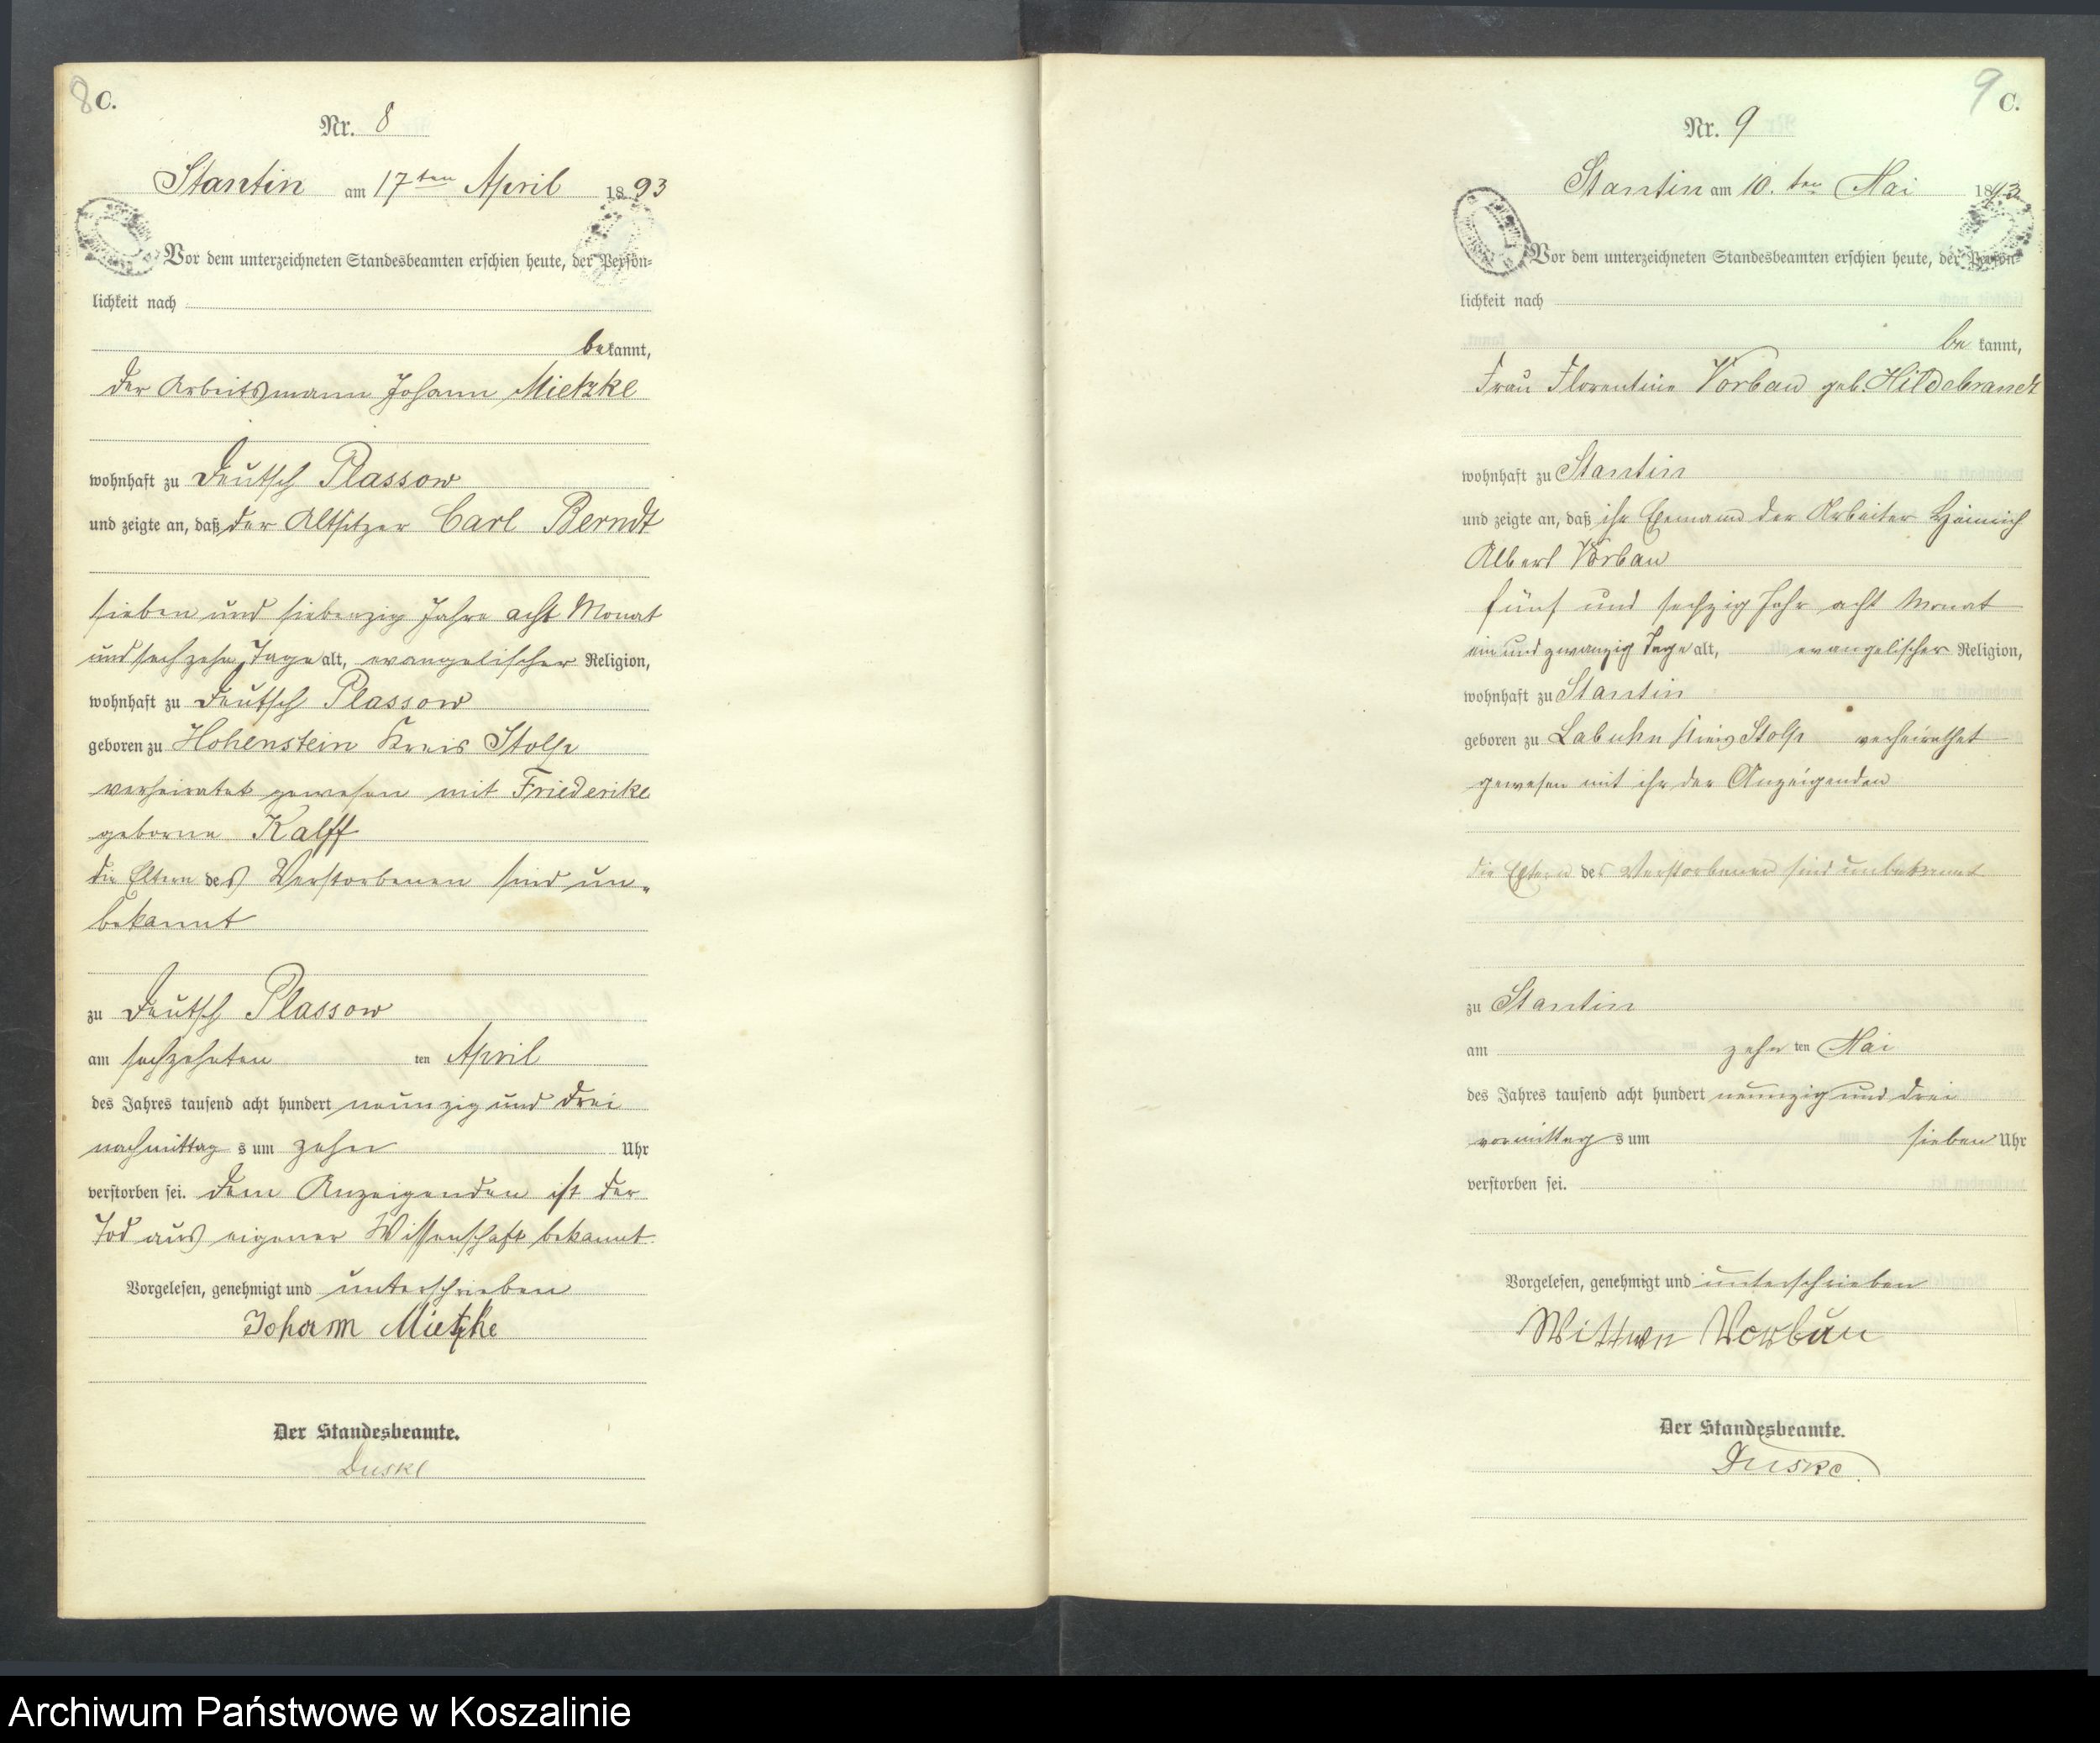 8 C.
Nr. 8
Stantin am 17ten April 1893
Vor dem unterzeichneten Standesbeamten erschien heute, der Persön-
lichkeit nach
bekannt,
der Arbeitsmann Johann Mietzke
wohnhaft zu Deutsch Plassow
und zeigte an, daß der Altsitzer Carl Berndt
sieben und siebenzig Jahre acht Monat
und sechzehn Tage alt, evangelischer Religion,
wohnhaft zu Deutsch Plassow
geboren zu Hohenstein Kreis Stolp
verheiratet gewesen mit Friederike
geborne Kalff
die Eltern des Verstorbenen sind un-
bekannt
zu Deutsch Plassow
am sechzehnten ten April
des Jahres tausend acht hundert neunzig und drei
nachmittag s um zehn Uhr
verstorben sei. Dem Anzeigenden ist der
Tod aus eigener Wissenschaft bekannt.
Vorgelesen, genehmigt und unterschrieben
Johann Mietzke
Der Standesbeamte.
Duske
9 C.
Nr. 9
Stantin am 10. ten Mai 1893
Vor dem unterzeichneten Standesbeamten erschien heute, der Persön-
lichkeit nach
be kannt,
Frau Florentine Vorbau geb. Hildebrandt
wohnhaft zu Stantin
und zeigte an, daß ihr Ehemann der Arbeiter Heinrich
Albert Vorbau
fünf und sechzig Jahr acht Monat
ein und zwanzig Tage alt, evangelischer Religion,
wohnhaft zu Stantin
geboren zu Labuhn Kreis Stolp verheirathet
gewesen mit ihr der Anzeigenden
die Eltern des Verstorbenen sind unbekannt
zu Stantin
am zehn ten Mai
des Jahres tausend acht hundert neunzig und drei
vormittag s um sieben Uhr
verstorben sei.
Vorgelesen, genehmigt und unterschrieben
Wittwe Vorbau
Der Standesbeamte.
Duske.
Archiwum Państwowe w Koszalinie